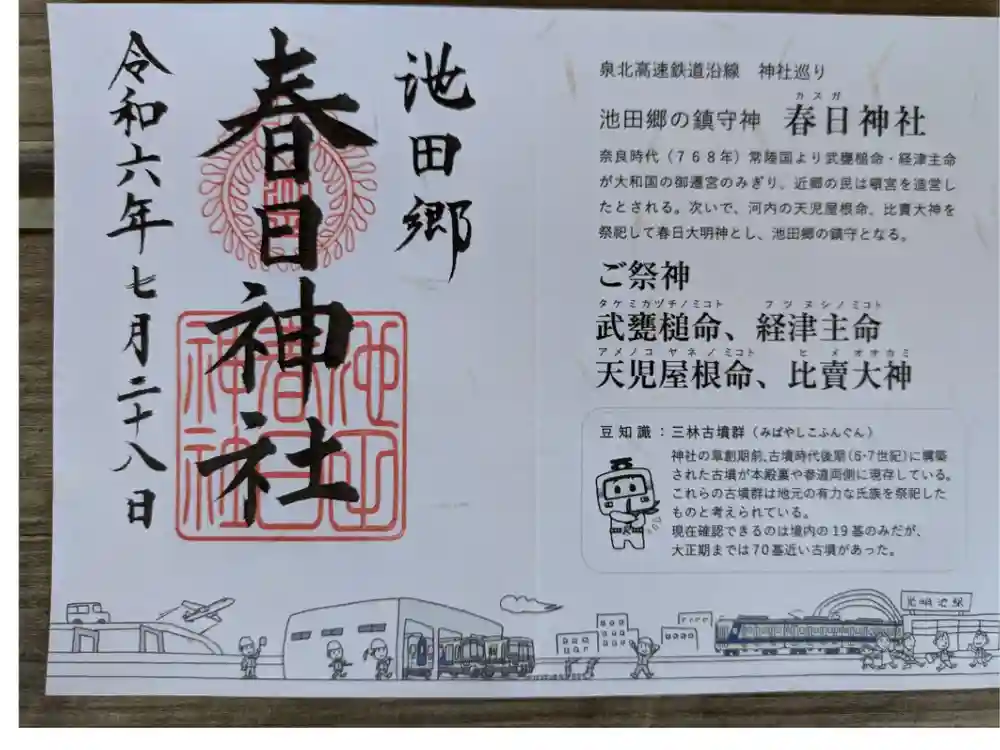 池田郷
春日神社
令和六年七月二十八日
池田
春日
神社
泉北高速鉄道沿線 神社巡り
カスガ
池田郷の鎮守神 春日神社
奈良時代（７６８年）常陸国より武甕槌命・経津主命
が大和国の御遷宮のみぎり、近郷の民は頓宮を造営し
たとされる。次いで、河内の天児屋根命、比賣大神を
祭祀して春日大明神とし、池田郷の鎮守となる。
ご祭神
タケミカヅチノミコト フツヌシノミコト
武甕槌命、経津主命
アメノコヤネノミコト ヒメオオカミ
天児屋根命、比賣大神
豆知識：三林古墳群（みばやしこふんぐん）
神社の草創期前、古墳時代後期（6・7世紀）に構築
された古墳が本殿裏や参道両側に現存している。
これらの古墳群は地元の有力な氏族を祭祀した
ものと考えられている。
現在確認できるのは境内の19基のみだが、
大正期までは70基近い古墳があった。
光明池駅